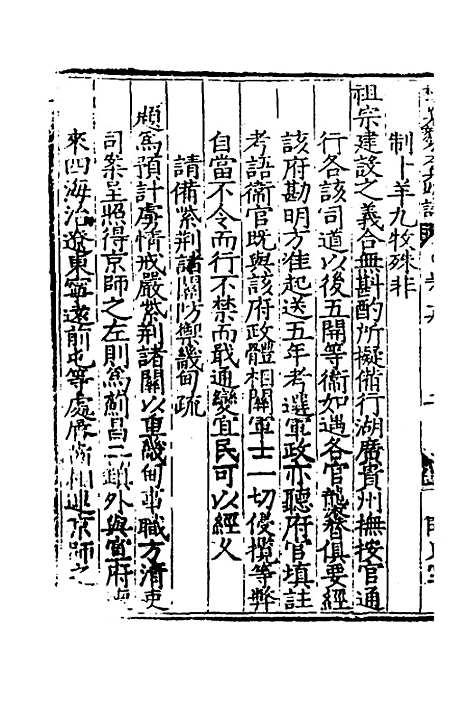 制十羊九牧殊非
祖宗建設之義合無斟酌所擬備行湖廣貴州撫按官通
行各該司道以後五開等衛如遇各官襲替俱要經
該府勘明方准起送五年考選軍政亦聽府官填註
考語衛官既與該府政體相關軍士一切侵攬等弊
自當不令而行不禁而戢通變宜民可以經久
請備紫荆諸關防禦畿甸疏
題爲預計虜情戒嚴紫荆諸關以重畿甸事職方清吏
司案呈照得京師之左則爲薊昌二鎮外與宣府
來四海冶遼東寧遠前屯等處唇齒相連京師之